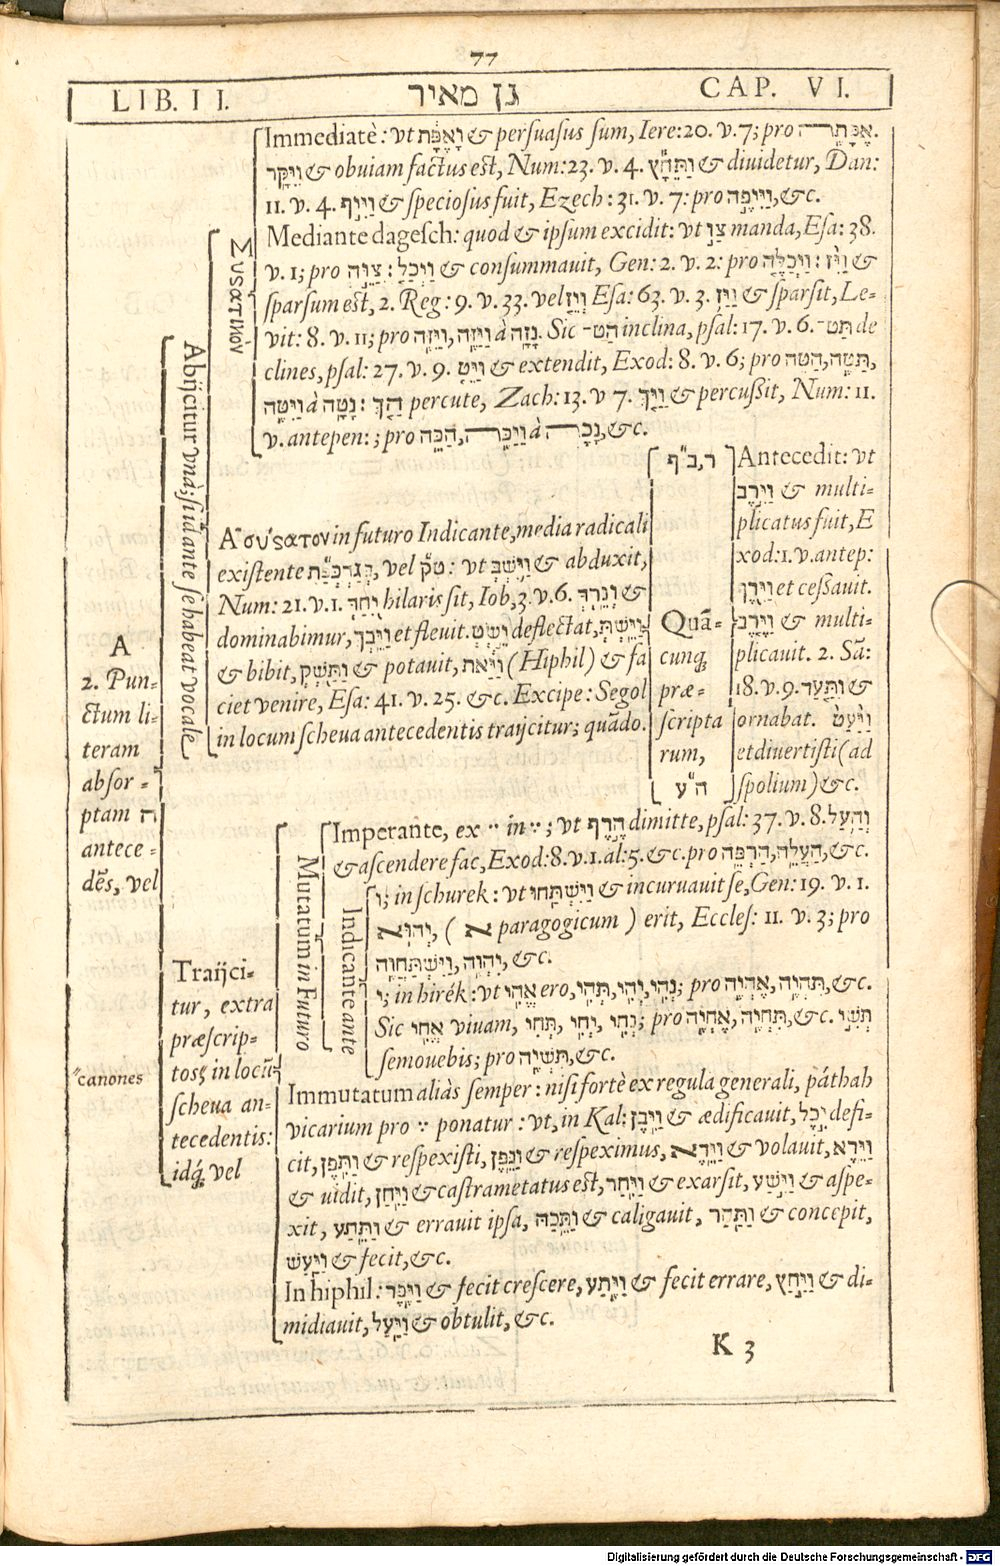 77
LIB. II. גן מאיר CAP. VI.
Immediatè: vt וָאֶפָּת & persuasus sum, Iere: 20. v. 7; pro
וַיִּקָּר & obuiam factus est, Num: 23. v. 4. וְתֵחָץ & diuidetur, Dan:
11. v. 4. וַיִּיף & speciosus fuit, Ezech: 31. v. 7: pro וַיִּיפֶה, &c.
Mediante dagesch: quod & ipsum excidit: vt צַו manda, Esa: 38.
v. 1; pro צַוֵּה: וַיְכַל & consummauit, Gen: 2. v. 2: pro וַיְכַלֶּה: וַיִּז &
sparsum est, 2. Reg: 9. v. 33. vel וְיֵז Esa: 63. v. 3. וַיַּז & sparsit, Le-
vit: 8. v. 11; pro וַיִּזֶּה, וַיַּזֶּה à נָזָה. Sic הַט־ inclina, psal: 17. v. 6. תַּט־ de
clines, psal: 27. v. 9. וַיֵּט & extendit, Exod: 8. v. 6; pro הַטֵּה, תַּטֶּה,
וַיִּטֶּה à נָטָה: הַךְ percute, Zach: 13. v 7. וַיַּךְ & percußit, Num: 11.
v. antepen:; pro הַכֵּה, וַיַּכֶּה à נָכָה, &c.
Μυϛατικόν
Abijcitur vnà; si id ante se habeat vocale
Ἀσύϛατον in futuro Indicante, media radicali
existente בְּגַדְכְּפַת, vel טק: vt וַיִּשְׁבְּ & abduxit,
Num: 21. v. 1. יִחַדְּ hilaris sit, Iob, 3. v. 6. וְנֵרְדְּ &
dominabimur, וַיֵּבְךְּ et fleuit. יֵשְׂטְ deflectat, וַיֵּשְׁתְּ
& bibit, וַתַּשְׁקְ & potauit, וַיַּאת (Hiphil) & fa
ciet venire, Esa: 41. v. 25. &c. Excipe: Segol
in locum scheua antecedentis traijcitur; quãdo.
ר, ב״ף
Quã-
cunq;
præ-
scripta
rum,
ה״ע
Antecedit: vt
וַיִּרֶב & multi-
plicatus fuit, E
xod: 1. v. antep:
וַיִּרֶף et ceßauit.
וַיֶּרֶב & multi-
plicauit. 2. Sã:
18. v. 9. וְתַעַד &
ornabat. וַיַּעַט
et diuertisti (ad
spolium) &c.
A
2. Pun-
ctum li-
teram
absor-
ptam ה
antece-
dẽs, vel
"canones
Traijci-
tur, extra
præscrip-
tosꝫ in locũ
scheua an-
tecedentis:
idq́; vel
Mutatum in Futuro
Imperante, ex ֵ in ֶ; vt הֶרֶף dimitte, psal: 37. v. 8. וְהַעַל
& ascendere fac, Exod: 8. v. 1. al: 5. &c. pro הַרְפֵּה, הַעֲלֵה, &c.
Indicante ante
י; in schurek: vt וַיִּשְׁתַּחוּ & incuruauit se, Gen: 19. v. 1.
יְהוּא, (א paragogicum) erit, Eccles: 11. v. 3; pro
יִהְוֶה, וַיִּשְׁתַּחֲוֶה, &c.
י; in hirék: vt אֱהִי ero, תְּהִי, יְהִי, נְהִי; pro אֶהְיֶה, תִּהְיֶה, &c.
Sic אֱחִי viuam, תְּחִי, יְחִי, נְחִי; pro אֶחְיֶה, תִּחְיֶה, &c. תֶּשִׁי
semouebis; pro תִּשְׁיֶה, &c.
Immutatum aliàs semper: nisi fortè ex regula generali, páthah
vicarium pro ֶ ponatur: vt, in Kal: וַיִּבֶן & ædificauit, יִכֶל defi-
cit, וַתֵּפֶן & respexisti, וַנֵּפֶן & respeximus, וַיֵּדֶא & volauit, וַיֵּרֶא
& uidit, וַיִּחַן & castrametatus est, וַיִּחַר & exarsit, וַיִּשַׁע & aspe-
xit, וַתֵּתַע & errauit ipsa, וַתֵּכַהּ & caligauit, וַתַּהַר & concepit,
וַיַּעַשׂ & fecit, &c.
In hiphil: וַיֶּפֶר & fecit crescere, וַיֶּתַע & fecit errare, וַיַּחַץ & di-
midiauit, וַיַּעַל & obtulit, &c.
K 3
Digitalisierung gefördert durch die Deutsche Forschungsgemeinschaft - DFG